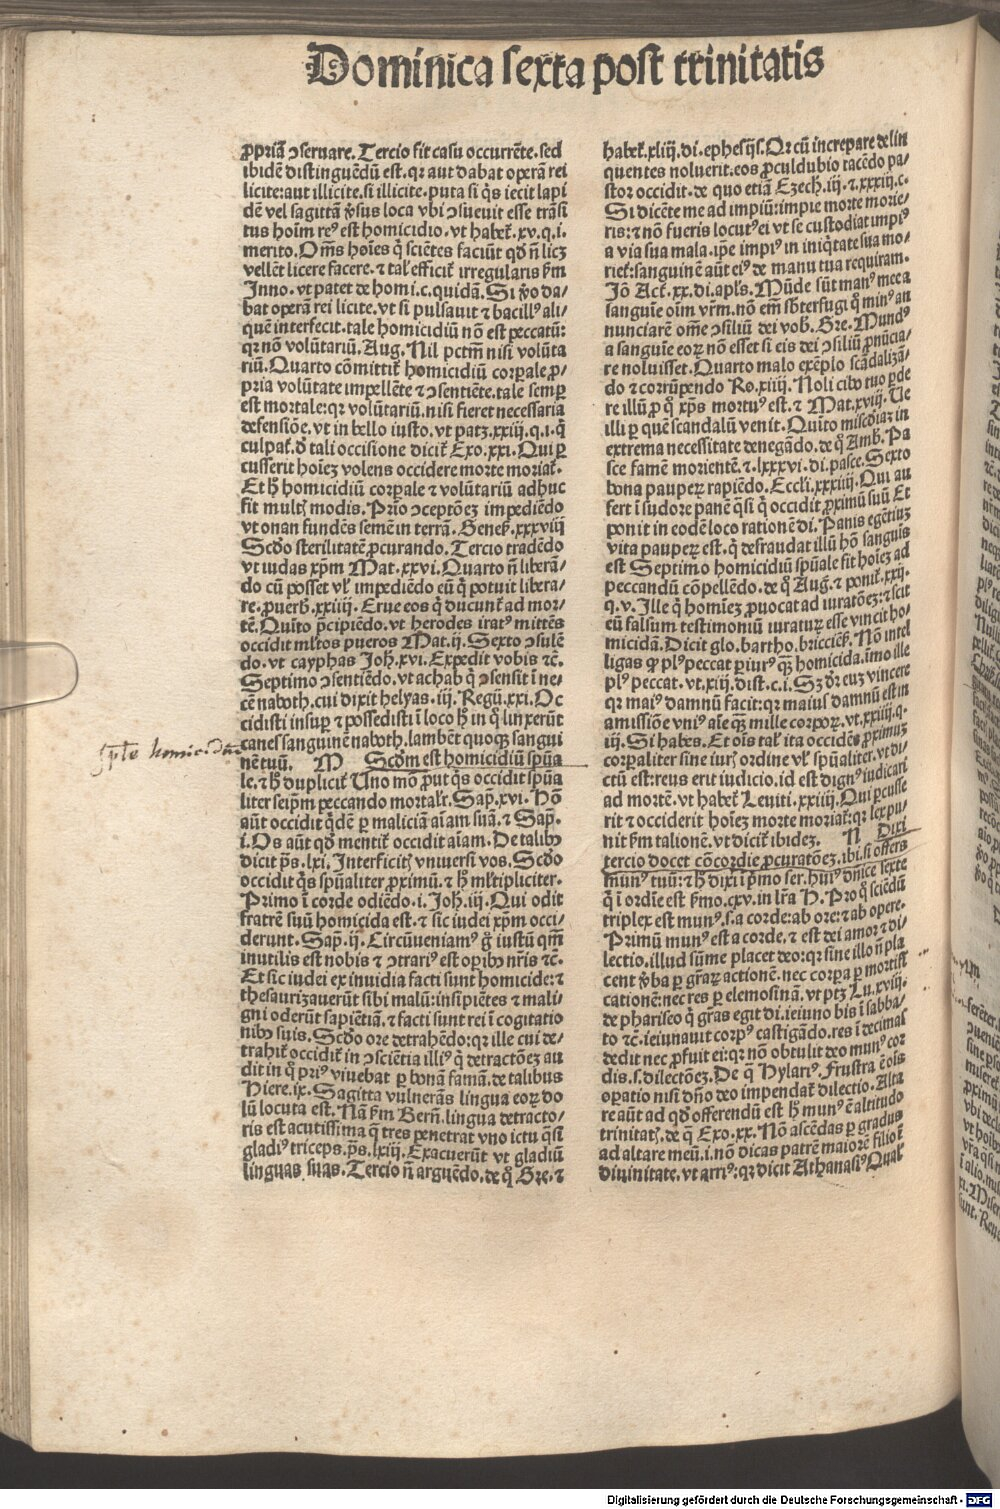 Dominica sexta post trinitatis
ꝓpriā ↄseruare. Tercio fit casu occurrēte. sed
ibidē distinguēdū est. qꝛ aut dabat operā rei
licite: aut illicite. si illicite. puta si q̄s iecit lapi
dē vel sagittā ꝟsus loca vbi ↄsueuit esse trāsi
tus hoīm reꝰ est homicidio. vt habet᷒. xv. q. i.
merito. Om̄s hoīes q̄ sciētes faciūt qd̄ n̄ licꝫ
vellēt licere facere. ⁊ tal᷒ efficit᷒ irregularis ẜm
Inno. vt patet de homi. c. quidā. Si ꝟo da⸗
bat operā rei licite. vt si pulsauit ⁊ bacillꝰ ali⸗
quē interfecit. tale homicidiū nō est peccatū:
qꝛ nō volūtariū. Aug. Nil pctm̄ nisi volūta
riū. Quarto cōmittit᷒ homicidiū corꝑale ꝓ⸗
pria volūtate impellēte ⁊ ↄsentiēte. tale semꝑ
est mortale: qꝛ volūtariū. nisi fieret necessaria
defensiōe. vt in bello iusto. vt patꝫ. xxiij. q. i. q̄
culpat᷒. d̄ tali occisione dicit᷒ Exo. xxi. Qui ꝑ
cusserit hoīeꝫ volens occidere morte moriat᷒.
Et h̄ homicidiū corꝑale ⁊ voluntariū adhuc
fit mult᷒ modis. Prīo ↄceptōeꝫ impediēdo
vt onan fundēs semē in terrā. Geneẜ. xxxviij
Scd̄o sterilitatē ꝓcurando. Tercio tradēdo
vt iudas xp̄m Mat. xxvi. Quarto n̄ liberā⸗
do cū posset vl᷒ impediēdo eū q̄ potuit libera⸗
re. ꝓuerb̄. xxiiij. Erue eos q̄ ducunt᷒ ad mor⸗
tē. Quīto p̄cipiēdo. vt herodes iratꝰ mittēs
occidit ml̄tos pueros Mat. ij. Sexto ↄsulē
do. vt cayphas Joh̄. xvi. Expedit vobis ⁊c̄.
Septimo ↄsentiēdo. vt achab q̄ ↄsensit ī ne⸗
cē naboth. cui dixit helyas. iij. Regū. xxi. Oc
cidisti insuꝑ ⁊ possedisti: ī loco h̄ in q̄ linxerūt
canes sanguinē naboth. lambēt quoqꝫ sangui
nē tuū. M Scd̄m est homicidiū spūa
le. ⁊ h̄ duplicit᷒ Uno mō ꝓut q̄s occidit spūa
liter seip̄m peccando mortal᷒r. Sap̄. xvi. Hō
aūt occidit q̄dē ꝑ maliciā aīam suā. ⁊ Sap̄.
i. Os aūt qd̄ mentit᷒ occidit aīam. De talibꝰ
dicit p̄s. lxi. Interficit᷒ vniuersi vos. Scd̄o
occidit q̄s spūaliter ꝓximū. ⁊ h̄ ml̄tipliciter.
Primo ī corde odiēdo. i. Joh̄. iij. Qui odit
fratrē suū homicida est. ⁊ sic iudei xp̄m occi⸗
derunt. Sap̄. ij. Circūueniamꝰ ḡ iustū qm̄
inutilis est nobis ⁊ ↄtrariꝰ est oꝑibꝰ nr̄is ⁊c̄.
Et sic iudei ex inuidia facti sunt homicide: ⁊
thesaurizauerūt sibi malū: insipiētes ⁊ mali⸗
gni oderūt sapiētiā. ⁊ facti sunt rei ī cogitatio
nibꝰ suis. Scd̄o ore detrahēdo: qꝛ ille cui de⸗
trahit᷒ occidit᷒ in ↄsciētia illiꝰ q̄ detractōeꝫ au
dit in q̄ priꝰ viuebat ꝑ bonā famā. de talibus
Hiere. ix. Sagitta vulnerās lingua eoꝝ do
lū locuta est. Nā ẜm Bern̄. lingua detracto⸗
ris est acutissima q̄ tres penetrat vno ictu q̄si
gladiꝰ triceps. p̄s. lxiij. Exacuerūt vt gladiū
linguas suas. Tercio n̄ arguēdo. de q̄ Gre. ⁊
sp̄ale homicidiū
habet᷒. xliij. di. ephesijs. Qꝛ cū increpare delin
quentes noluerit. eos ꝓculdubio tacēdo pa⸗
stoꝛ occidit. de quo etiā Ezech. iij. ⁊. xxxiij. c.
Si dicēte me ad impiū: impie morte morie⸗
ris: ⁊ nō fueris locutꝰ ei vt se custodiat impiꝰ
a via sua mala. ip̄e impiꝰ in iniq̄tate sua mo⸗
riet᷒: sanguinē aūt eiꝰ de manu tua requiram.
Jō Act᷒. xx. di. apl̄s. Mūde sūt manꝰ mee a
sanguīe oīm vr̄m. nō em̄ sb̄terfugi q̄ minꝰ an
nunciarē om̄e ↄsiliū dei vob̄. Gre. Mundꝰ
a sanguīe eoꝝ nō esset si eis dei ↄsiliū ꝓnūcia⸗
re noluisset. Quarto malo exēplo scādalizā⸗
do ⁊ corrūpendo Ro. xiiij. Noli cibo tuo ꝑde
re illū ꝓ q̄ xp̄s mortuꝰ est. ⁊ Mat. xviij. Ue
illi ꝑ quē scandalū venit. Quīto miscd̄iaꝫ in
extrema necessitate denegādo. de q̄ Amb̄. Pa
sce famē morientē. ⁊. lxxxvi. di. pasce. Sexto
bona pauperꝝ rapiēdo. Eccl᷒i. xxxiiij. Qui au
fert ī sudore panē q̄si q̄ occidit ꝓximū suū Et
ponit in eodē loco rationē di. Panis egētiuꝫ
vita pauperꝝ est. q̄ defraudat illū hō sanguis
est Septimo homicidiū spūale fit hoīeꝫ ad
peccandū cōpellēdo. de q̄ Aug. ⁊ ponit᷒. xxij.
q. v. Ille q̄ homīeꝫ ꝓuocat ad iuratōeꝫ: ⁊ scit
eū falsum testimoniū iuraturꝰ esse vincit ho⸗
micidā. Dicit glo. bartho. briccieñ. Nō intel
ligas ꝙ plꝰ peccat ꝑiurꝰ qꝫ homicida. īmo ille
plꝰ peccat. vt. xiij. dist. c. i. Sꝫ dꝛ euꝫ vincere
qꝛ maiꝰ damnū facit: qꝛ maius damnū est in
amissiōe vniꝰ aīe qꝫ mille corpoꝝ. vt. xxiiij. q.
iij. Si habes. Et oīs tal᷒ ita occidēs ꝓximuꝫ
corꝑaliter sine iur᷒ ordine vl᷒ spūaliter. vt di⸗
ctū est: reus erit iudicio. id est dignꝰ iudicari
ad mortē. vt habet᷒ Leuiti. xxiiij. Qui ꝑcusse
rit ⁊ occiderit hoīeꝫ morte moriat᷒: qꝛ lex pu⸗
nit ẜm talionē. vt dicit᷒ ibideꝫ. N Dixi
tercio docet cōcordie ꝓcuratōeꝫ. ibi. si offers
munꝰ tuū: ⁊ h̄ dixi ī p̄mo ser. huiꝰ dn̄ice sexte
q̄ ī ordīe est ẜmo. cxv. in lr̄a H. Pro q̄ sciēdū
triplex est munꝰ. s. a corde: ab ore: ⁊ ab opere.
Primū munꝰ est a corde. ⁊ est dei amor ⁊ di⸗
lectio. illud sūme placet deo: qꝛ sine illo n̄ pla
cent ꝟba ꝑ gr̄aꝝ actionē. nec corpa ꝑ mortifi
cationē: nec res ꝑ elemosinā. vt ptꝫ Lu. xviij.
de phariseo q̄ gr̄as egit di. ieiuno bis ī sabba⸗
to ⁊c̄. ieiunauit corpꝰ castigādo. res ī decimas
dedit nec ꝓfuit ei: qꝛ nō obtulit deo munꝰ cor
dis. s. dilectōeꝫ. De q̄ Hylariꝰ. Frustra ē oīs
opatio nisi dn̄o deo impendat᷒ dilectio. Alta
re aūt ad qd̄ offerendū est h̄ munꝰ ē altitudo
trinitat᷒. de q̄ Exo. xx. Nō ascēdas ꝑ gradus
ad altare meū. i. nō dicas patrē maiorē filio ī
diuinitate. vt arriꝰ: qꝛ dicit Athanasiꝰ Qual᷒
Digitalisierung gefördert durch die Deutsche Forschungsgemeinschaft - DFG